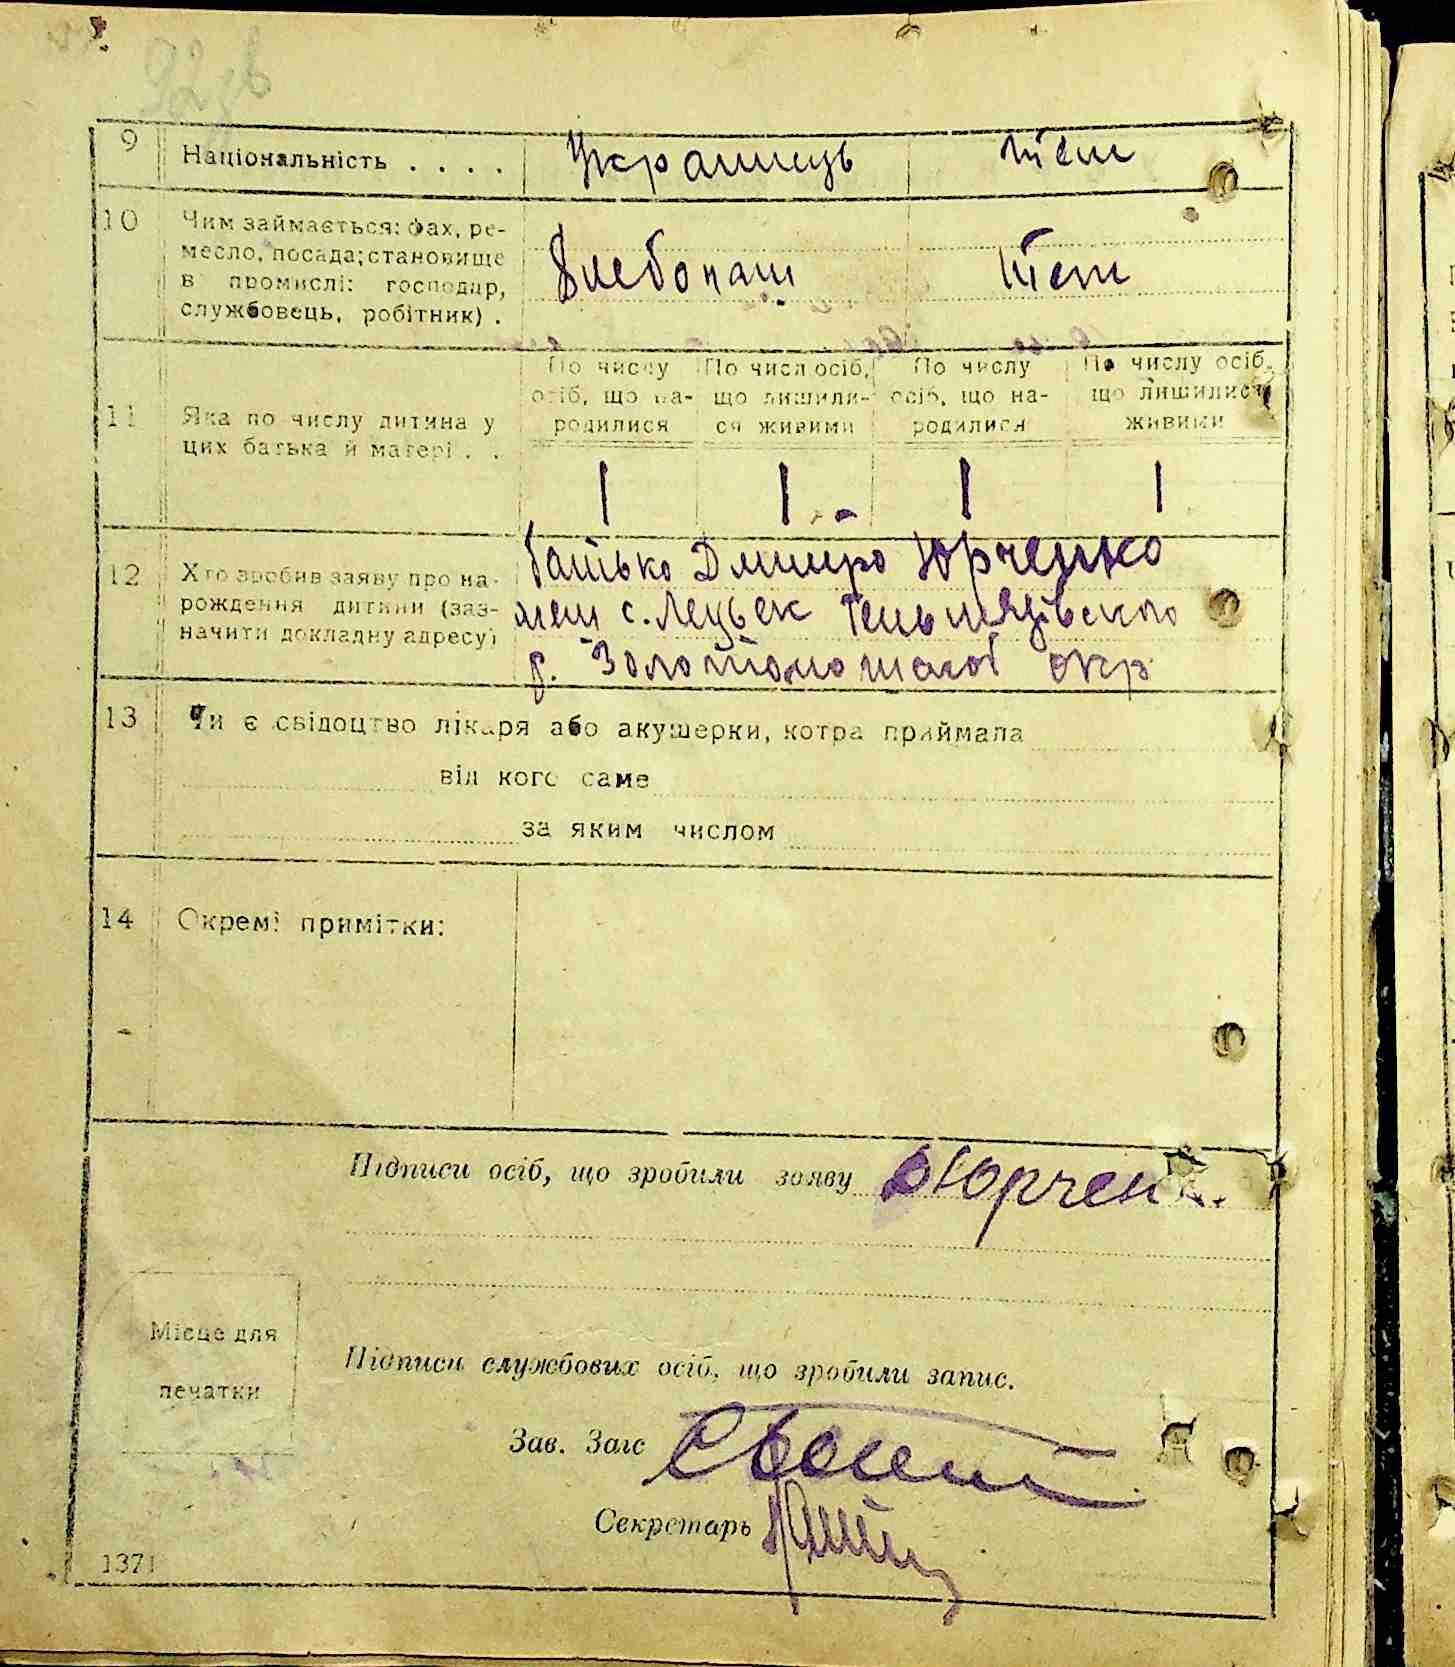 9 Національність . . . . Украинець теж
10 Чим займається: фах, ре-
месло, посада; становище
в промислі: господар,
службовець, робітник) .
Хлебопаш теж
По числу осіб, що на-родилися
По числ осіб, що лишили-ся живими
По числу осіб, що на-родилися
По числу осіб, що лишилися живими
11 Яка по числу дитина у
цих батька й матері . .
1 1 1 1
12 Хто зробив заяву про на-
рождення дитини (заз-
начити докладну адресу)
батько Дмитро Юрченко
меш с. Лецьек Гельмязівского
р. Золотоношской окр
13 Чи є свідоцтво лікаря або акушерки, котра приймала
від кого саме
за яким числом
14 Окремі примітки:
Підписи осіб, що зробили заяву Юрчен
Місце для
печатки
Підписи службових осіб, що зробили запис.
Зав. Загс
Секретарь
1371